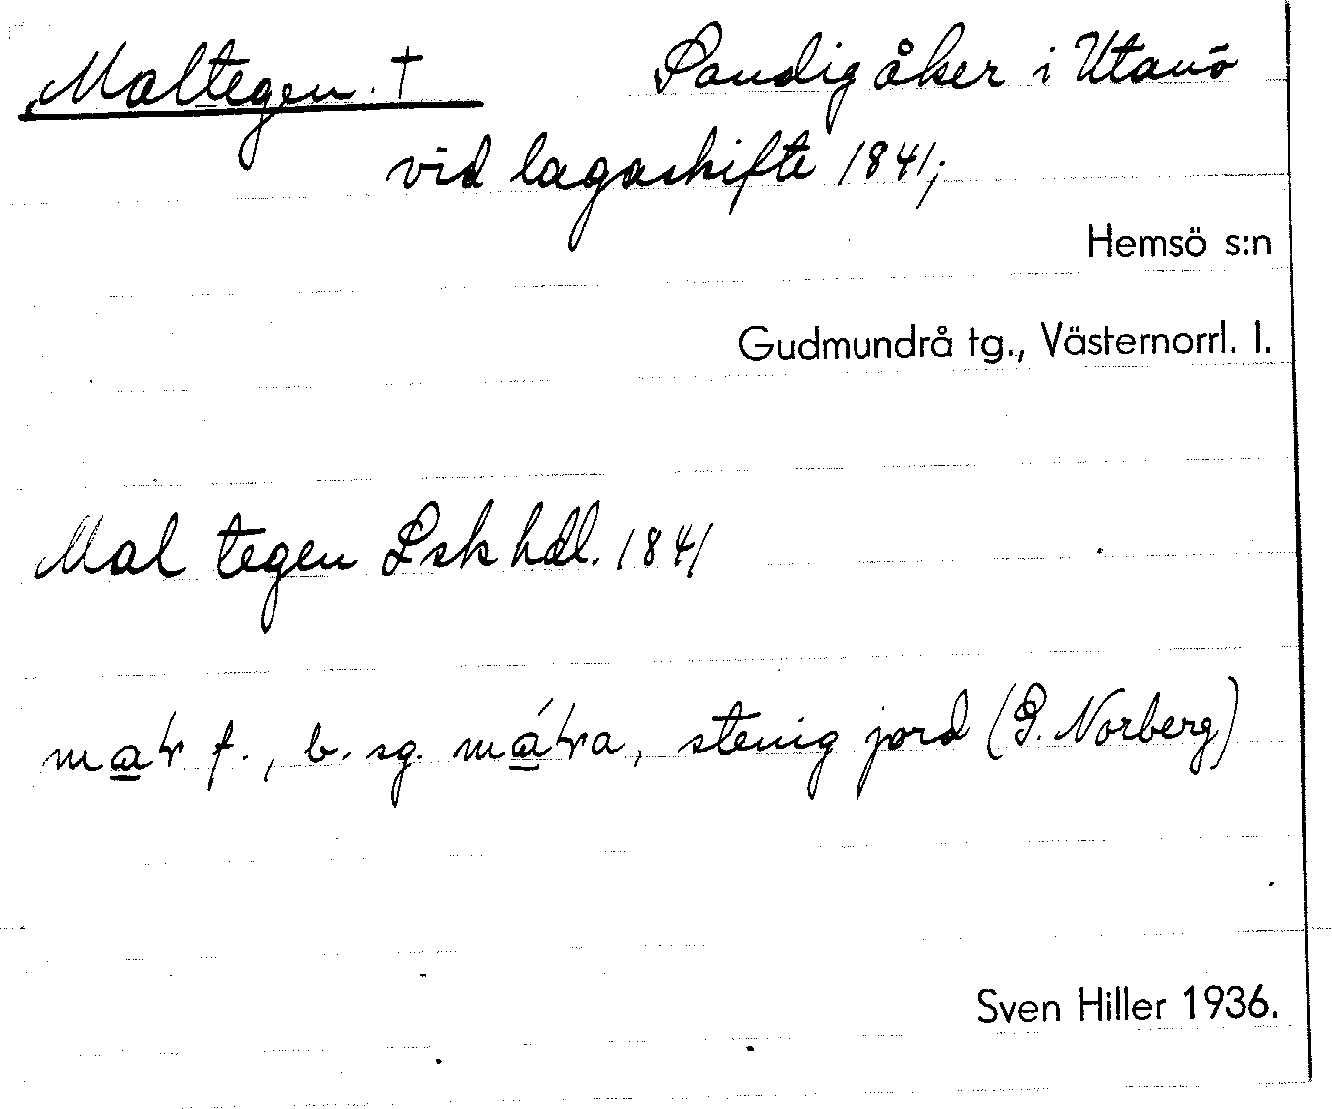 Maltegen. † Sandig åker i Utanö
vid lagaskifte 1841;
Hemsö s:n
Gudmundrå tg., Västernorrl. l.
Mal tegen Lsk hdl. 1841
f., b. sg. stenig jord (P. Norberg)
Sven Hiller 1936.